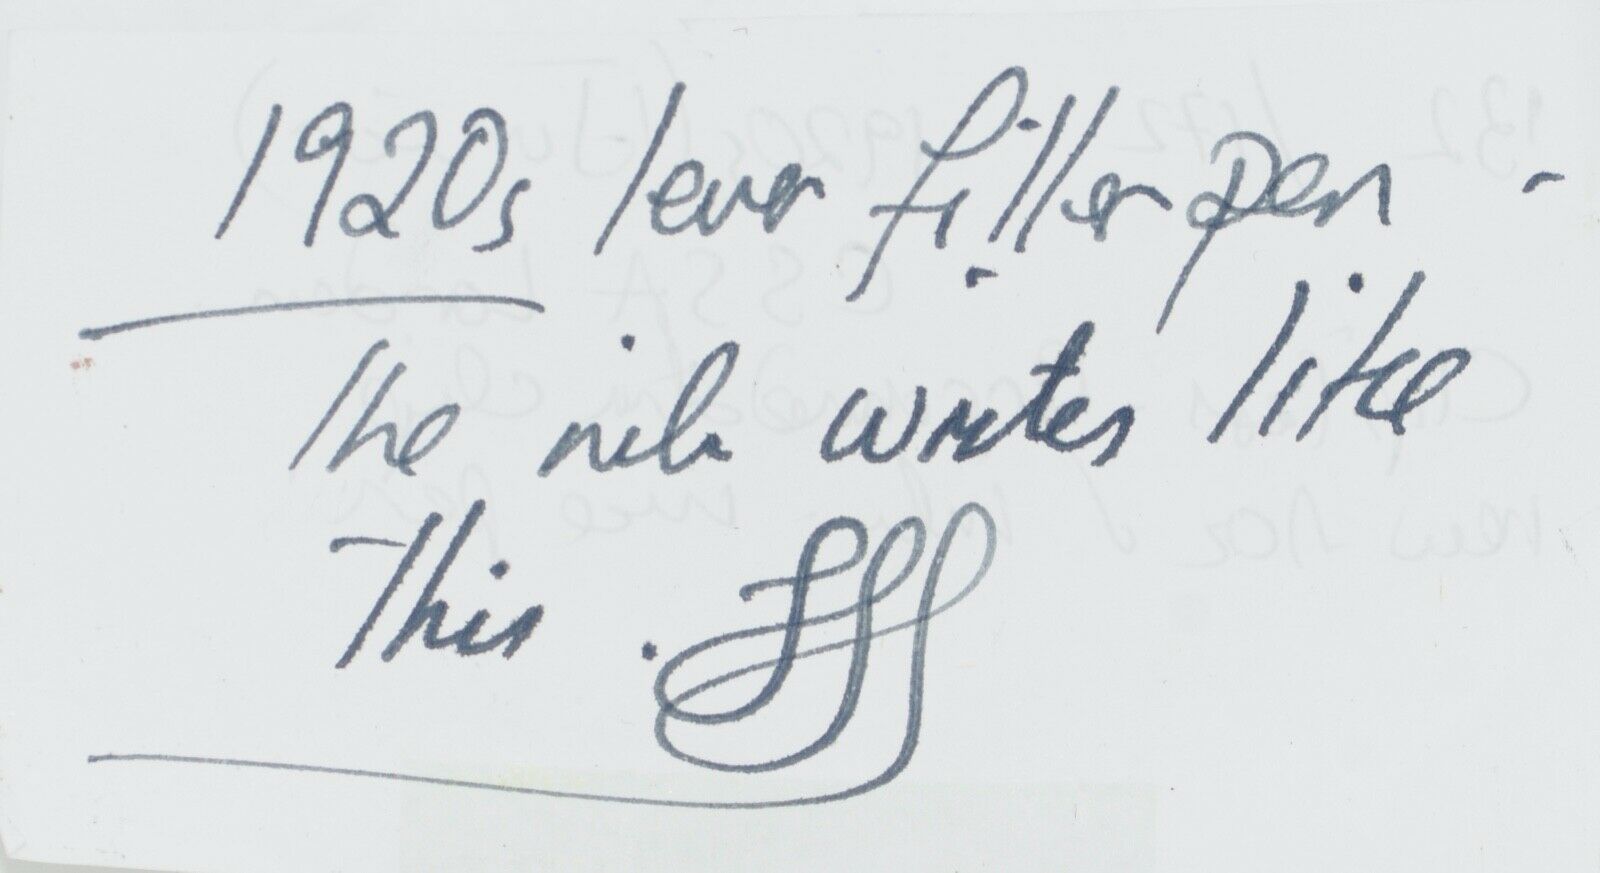 1920s lever filler pen -
the nib writes like
this.